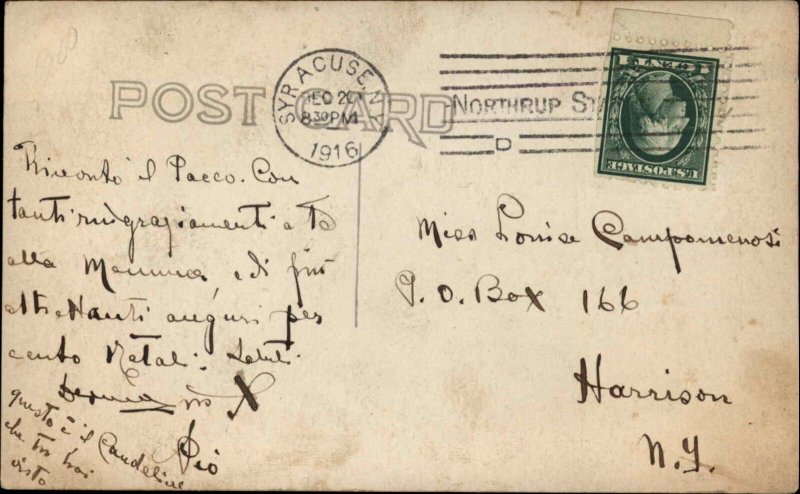 POST CARD
SYRACUSE N.Y.
DEC 20
8 30 PM
1916
NORTHRUP STA
D
1 CENT 1
U.S. POSTAGE
il Pacco. Con
tanti ringraziamenti a te
alla Mamma, e di più
altrettanti auguri per
cento Natali. Saluti
X
Pio
questo è il Candeline
che tu hai
visto
Miss Louise Campomenosi
P. O. Box 166
Harrison
N.Y.